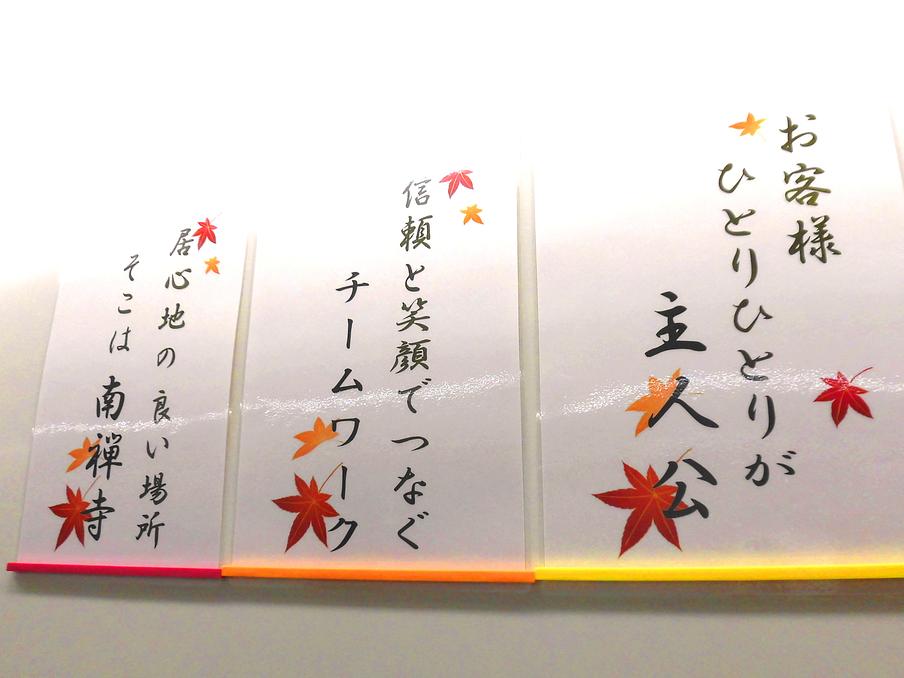 お客様
ひとりひとりが
主人公
信頼と笑顔でつなぐ
チームワーク
居心地の良い場所
そこは南禅寺